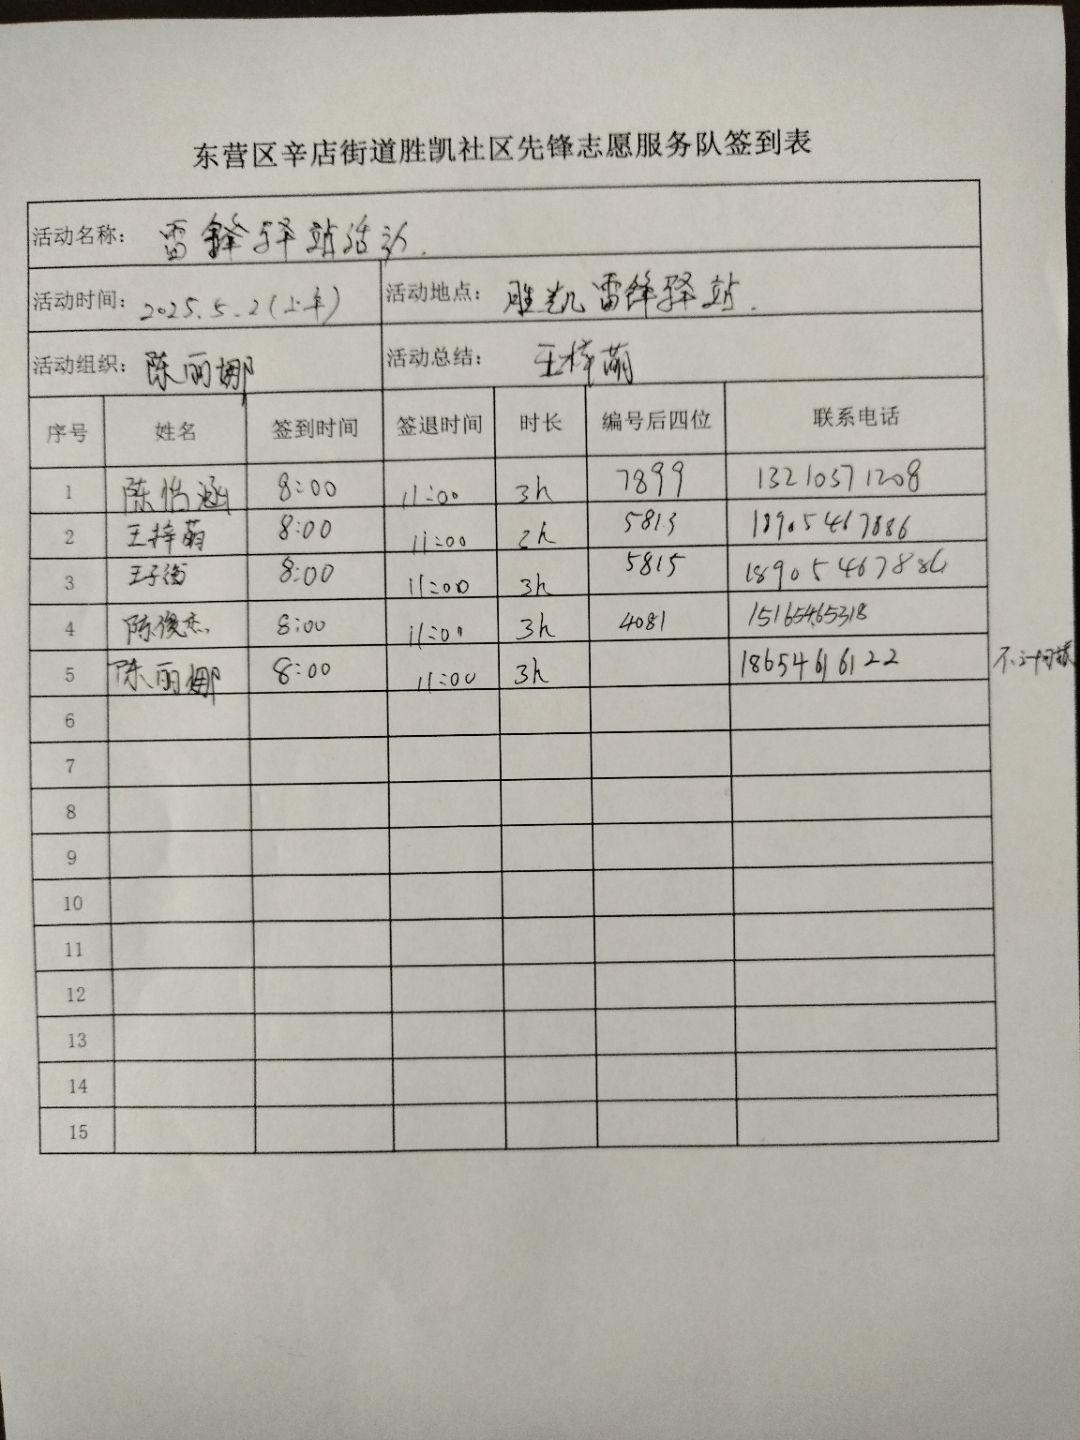 东营区辛店街道胜凯社区先锋志愿服务队签到表
活动名称: 雷锋驿站活动.
活动时间: 2025.5.2(上午) 活动地点: 胜凯雷锋驿站.
活动组织: 陈丽娜 活动总结: 王梓萌
序号 姓名 签到时间 签退时间 时长 编号后四位 联系电话
1 陈怡涵 8:00 11:00 3h 7899 13210571208
2 王梓萌 8:00 11:00 2h 5813 18905467886
3 王子衡 8:00 11:00 3h 5815 18905467886
4 陈俊杰 8:00 11:00 3h 4081 15165465318
5 陈丽娜 8:00 11:00 3h 18654616122 不计时
6
7
8
9
10
11
12
13
14
15